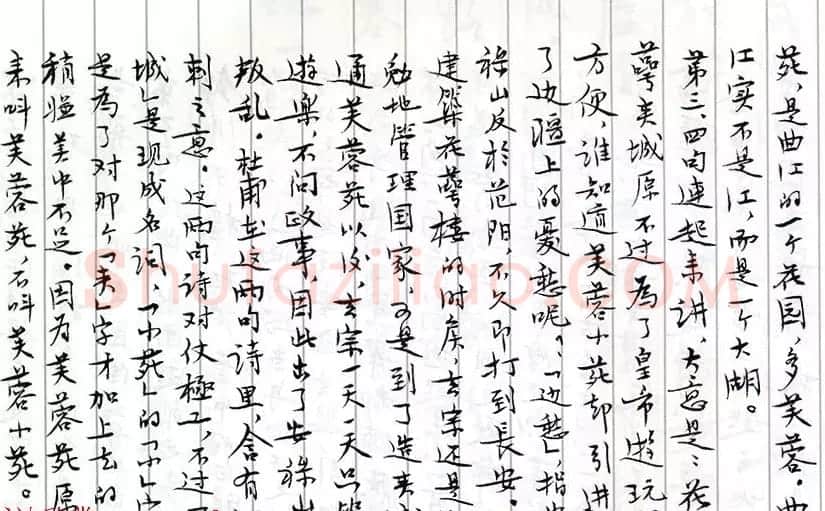 苑，是曲江的一个花园，多芙蓉。曲
江实不是江，而是一个大湖。
第三、四句连起来讲，大意是：花
萼夹城原不过为了皇帝遊玩
方便，谁知道芙蓉小苑却引进
了边疆上的憂愁呢。「边愁」，指安
禄山反於范阳，不久即打到长安。
建築花萼楼的时候，玄宗还是
勉地管理国家，可是到了造夹城
通芙蓉苑以後，玄宗一天一天只知
遊樂，不问政事，因此出了安禄山
叛乱。杜甫在这两句诗里，含有
刺之意。这两句诗对仗極工，不过
城」是现成名词，「小苑」的「小」字
是為了对那个「夹」字才加上去的
稍嫌美中不足。因为芙蓉苑原
来叫芙蓉苑，不叫芙蓉小苑。
Shufaziliao.COM